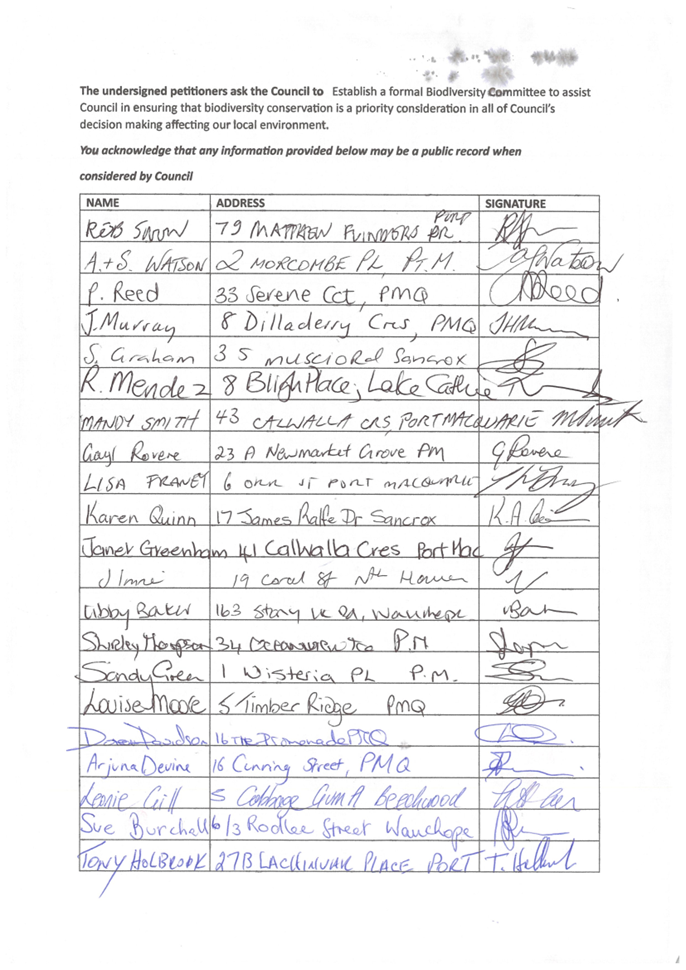 The undersigned petitioners ask the Council to Establish a formal Biodiversity Committee to assist
Council in ensuring that biodiversity conservation is a priority consideration in all of Council's
decision making affecting our local environment.
You acknowledge that any information provided below may be a public record when
considered by Council
NAME ADDRESS SIGNATURE
79 MATTHEW FLINDERS DR
A.+S. WATSON 2 MORCOMBE PL, PT.M. Watson
P. Reed 33 Serene Cct, PMQ Reed
J. Murray 8 Dilladerry Cres, PMQ
S. Graham 35 Sancrox
R. Mendez 8 Bligh Place, Lake Cathie
MANDY SMITH 43 CALWALLA CRS, PORT MACQUARIE
Gayl Rovere 23 A Newmarket Grove PM G Rovere
LISA FRANEY 6 ORR ST PORT MACQUARIE
Karen Quinn 17 James Ralfe Dr Sancrox K.A.
Janet Greenham 41 Calwalla Cres Port Mac
19 Coral St Nth Haven
Libby BAKER 163 Rd, Wauchope
Shirley 34 OCEANVIEW Tce
Sandy Green 1 Wisteria PL P.M.
Louise Moore 5 Timber Ridge PMQ
Davidson 16 THE Promenade PMQ
Arjuna Devine 16 Cunning Street, PMQ
Leonie Gill 5 Cabbage Gum Beechwood
Sue Burchall 6/3 Rodlee Street Wauchope
TONY HOLBROOK 27B PLACE PORT T.